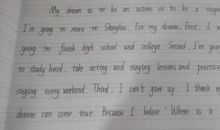 My dream is to be an actress or to be a singer
I'm going to move to Shanghai For my dream. First, I
going to finish high school and college. Second, I'm going
to study hard, take acting and singing lessons and practice
singing every weekend. Third, I can't give up. I think m
dream can come true. Because I believe "Where is a